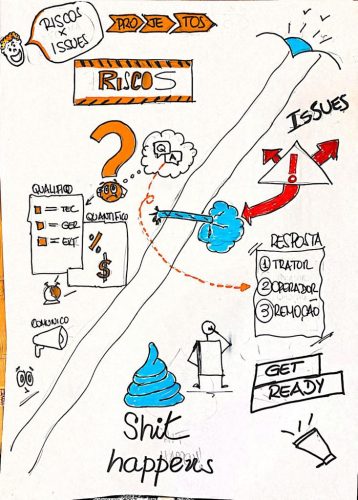 RISCOS
X
ISSUES
PROJETOS
RISCOS
ISSUES
Q
A
QUALIFICO
= TEC
= GER
= EXT
QUANTIFICO
%
$
RESPOSTA
1 TRATOR
2 OPERADOR
3 REMOÇÃO
COMUNICO
GET
READY
Shit
happens